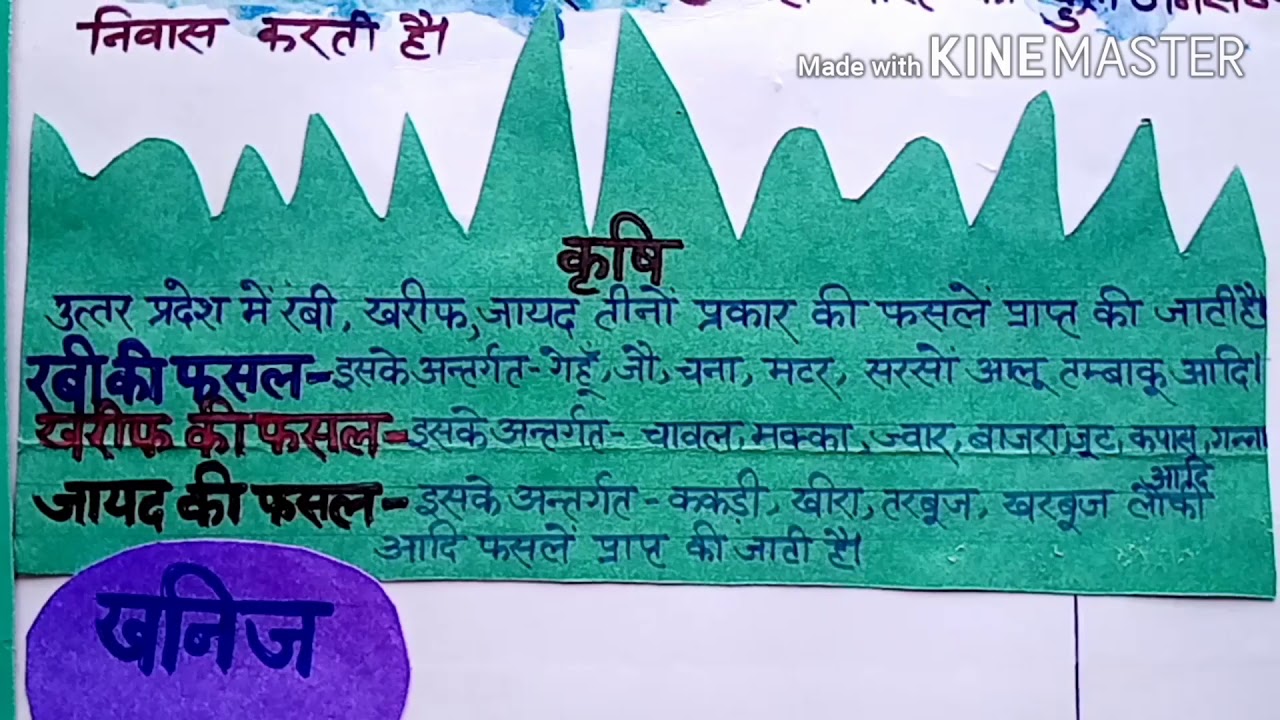 निवास करती है।
Made with KINEMASTER
कृषि
उत्तर प्रदेश में रबी, खरीफ, जायद तीनों प्रकार की फसलें प्राप्त की जाती है।
रबी की फसल - इसके अन्तर्गत - गेहूँ, जौ, चना, मटर, सरसों आलू तम्बाकू आदि।
खरीफ की फसल - इसके अन्तर्गत - चावल, मक्का, ज्वार, बाजरा, जूट, कपास, गन्ना आदि
जायद की फसल - इसके अन्तर्गत - ककड़ी, खीरा, तरबूज, खरबूज लौकी
आदि फसलें प्राप्त की जाती है।
खनिज